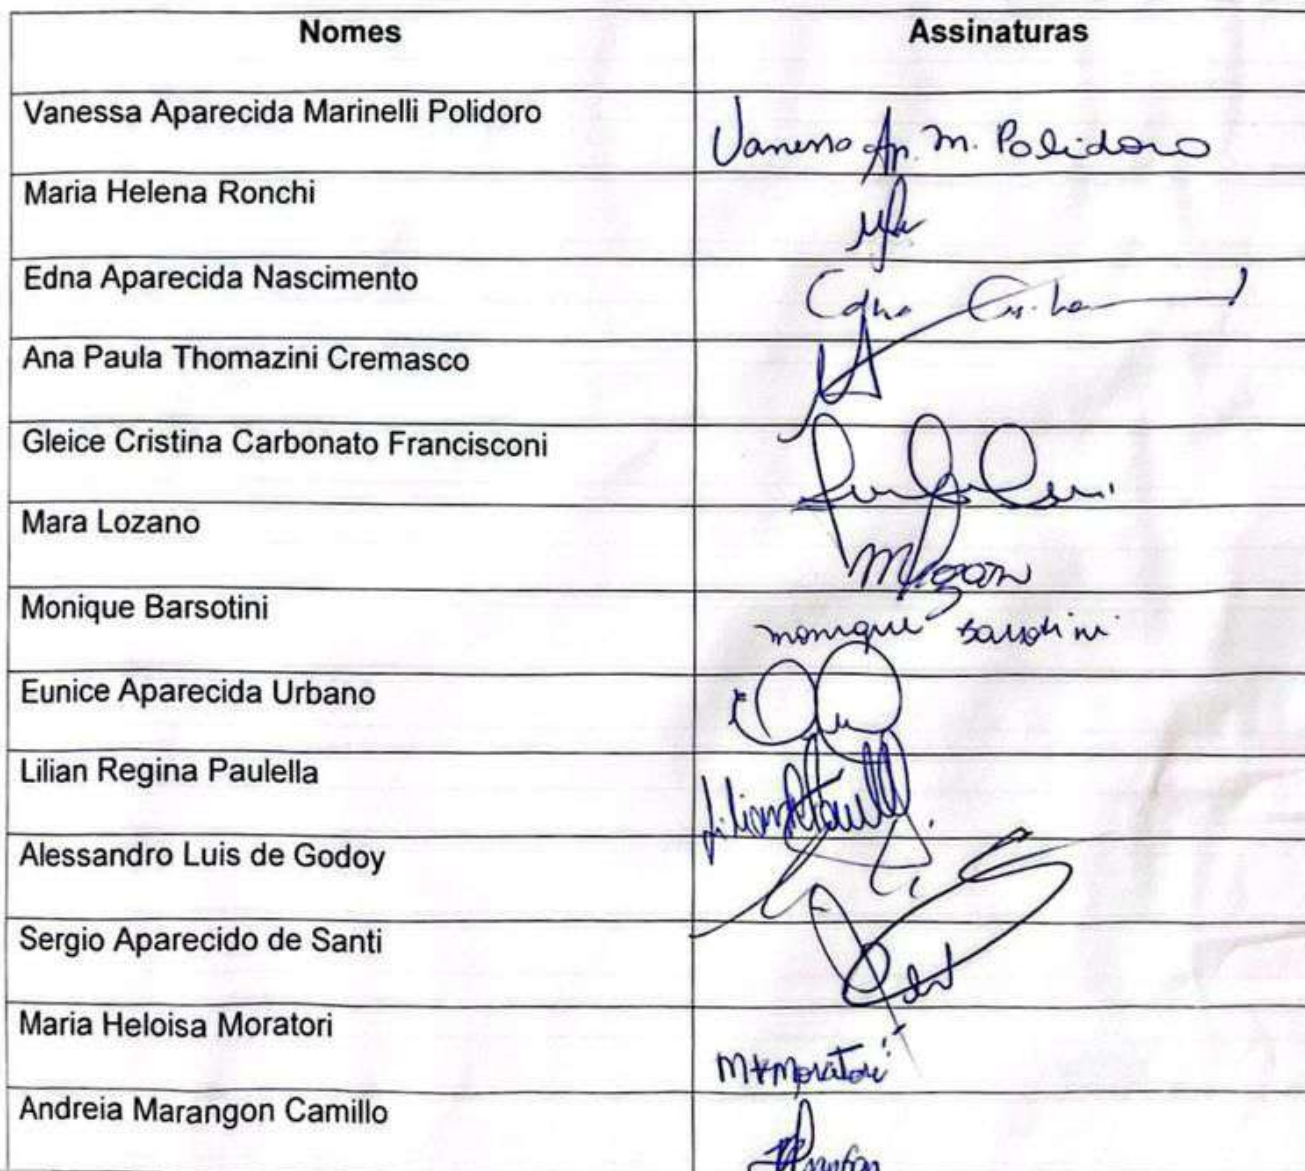 Nomes Assinaturas
Vanessa Aparecida Marinelli Polidoro
Vanessa Ap. M. Polidoro
Maria Helena Ronchi
Edna Aparecida Nascimento
Edna
Ana Paula Thomazini Cremasco
Gleice Cristina Carbonato Francisconi
Mara Lozano
Monique Barsotini
monique Barsotini
Eunice Aparecida Urbano
Lilian Regina Paulella
Alessandro Luis de Godoy
Sergio Aparecido de Santi
Maria Heloisa Moratori
MHMoratori
Andreia Marangon Camillo